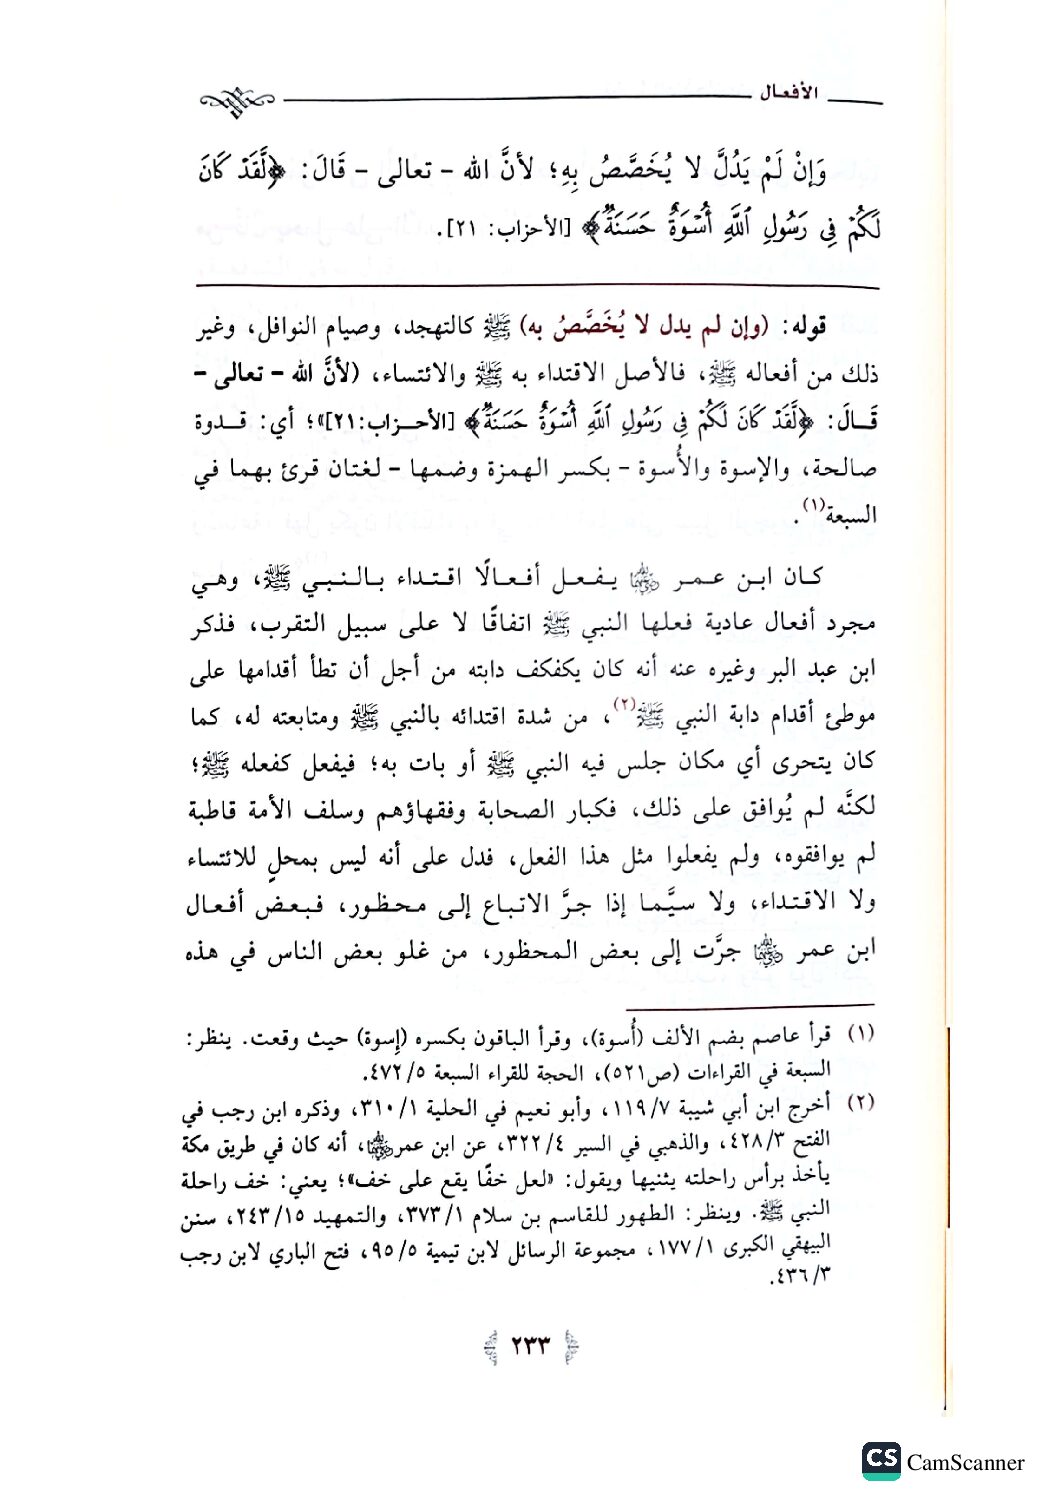 الأفعال
وَإنْ لَمْ يَدُلَّ لا يُخَصَّصُ بِهِ؛ لأنَّ الله - تعالى - قَالَ: ﴿لَّقَدۡ كَانَ
لَكُمۡ فِي رَسُولِ ٱللَّهِ أُسۡوَةٌ حَسَنَةٌ﴾ [الأحزاب: ٢١].
قوله: (وإن لم يدل لا يُخَصَّصُ به) ﷺ كالتهجد، وصيام النوافل، وغير
ذلك من أفعاله ﷺ، فالأصل الاقتداء به ﷺ والائتساء، (لأنَّ الله - تعالى -
قَالَ: ﴿لَّقَدۡ كَانَ لَكُمۡ فِي رَسُولِ ٱللَّهِ أُسۡوَةٌ حَسَنَةٌ﴾ [الأحزاب:٢١])؛ أي: قدوة
صالحة، والإسوة والأُسوة - بكسر الهمزة وضمها - لغتان قرئ بهما في
السبعة(١).
كان ابن عمر رضي الله عنهما يفعل أفعالًا اقتداء بالنبي ﷺ، وهي
مجرد أفعال عادية فعلها النبي ﷺ اتفاقًا لا على سبيل التقرب، فذكر
ابن عبد البر وغيره عنه أنه كان يكفكف دابته من أجل أن تطأ أقدامها على
موطئ أقدام دابة النبي ﷺ(٢)، من شدة اقتدائه بالنبي ﷺ ومتابعته له، كما
كان يتحرى أي مكان جلس فيه النبي ﷺ أو بات به؛ فيفعل كفعله ﷺ؛
لكنَّه لم يُوافق على ذلك، فكبار الصحابة وفقهاؤهم وسلف الأمة قاطبة
لم يوافقوه، ولم يفعلوا مثل هذا الفعل، فدل على أنه ليس بمحلٍ للائتساء
ولا الاقتداء، ولا سيَّما إذا جرَّ الاتباع إلى محظور، فبعض أفعال
ابن عمر رضي الله عنهما جرَّت إلى بعض المحظور، من غلو بعض الناس في هذه
(١) قرأ عاصم بضم الألف (أُسوة)، وقرأ الباقون بكسره (إِسوة) حيث وقعت. ينظر:
السبعة في القراءات (ص٥٢١)، الحجة للقراء السبعة ٤٧٢/٥.
(٢) أخرج ابن أبي شيبة ١١٩/٧، وأبو نعيم في الحلية ٣١٠/١، وذكره ابن رجب في
الفتح ٤٢٨/٣، والذهبي في السير ٣٢٢/٤، عن ابن عمر رضي الله عنهما، أنه كان في طريق مكة
يأخذ برأس راحلته يثنيها ويقول: «لعل خفًا يقع على خف»؛ يعني: خف راحلة
النبي ﷺ. وينظر: الطهور للقاسم بن سلام ٣٧٣/١، والتمهيد ٢٤٣/١٥، سنن
البيهقي الكبرى ١٧٧/١، مجموعة الرسائل لابن تيمية ٩٥/٥، فتح الباري لابن رجب
٤٣٦/٣.
٢٣٣
CS CamScanner